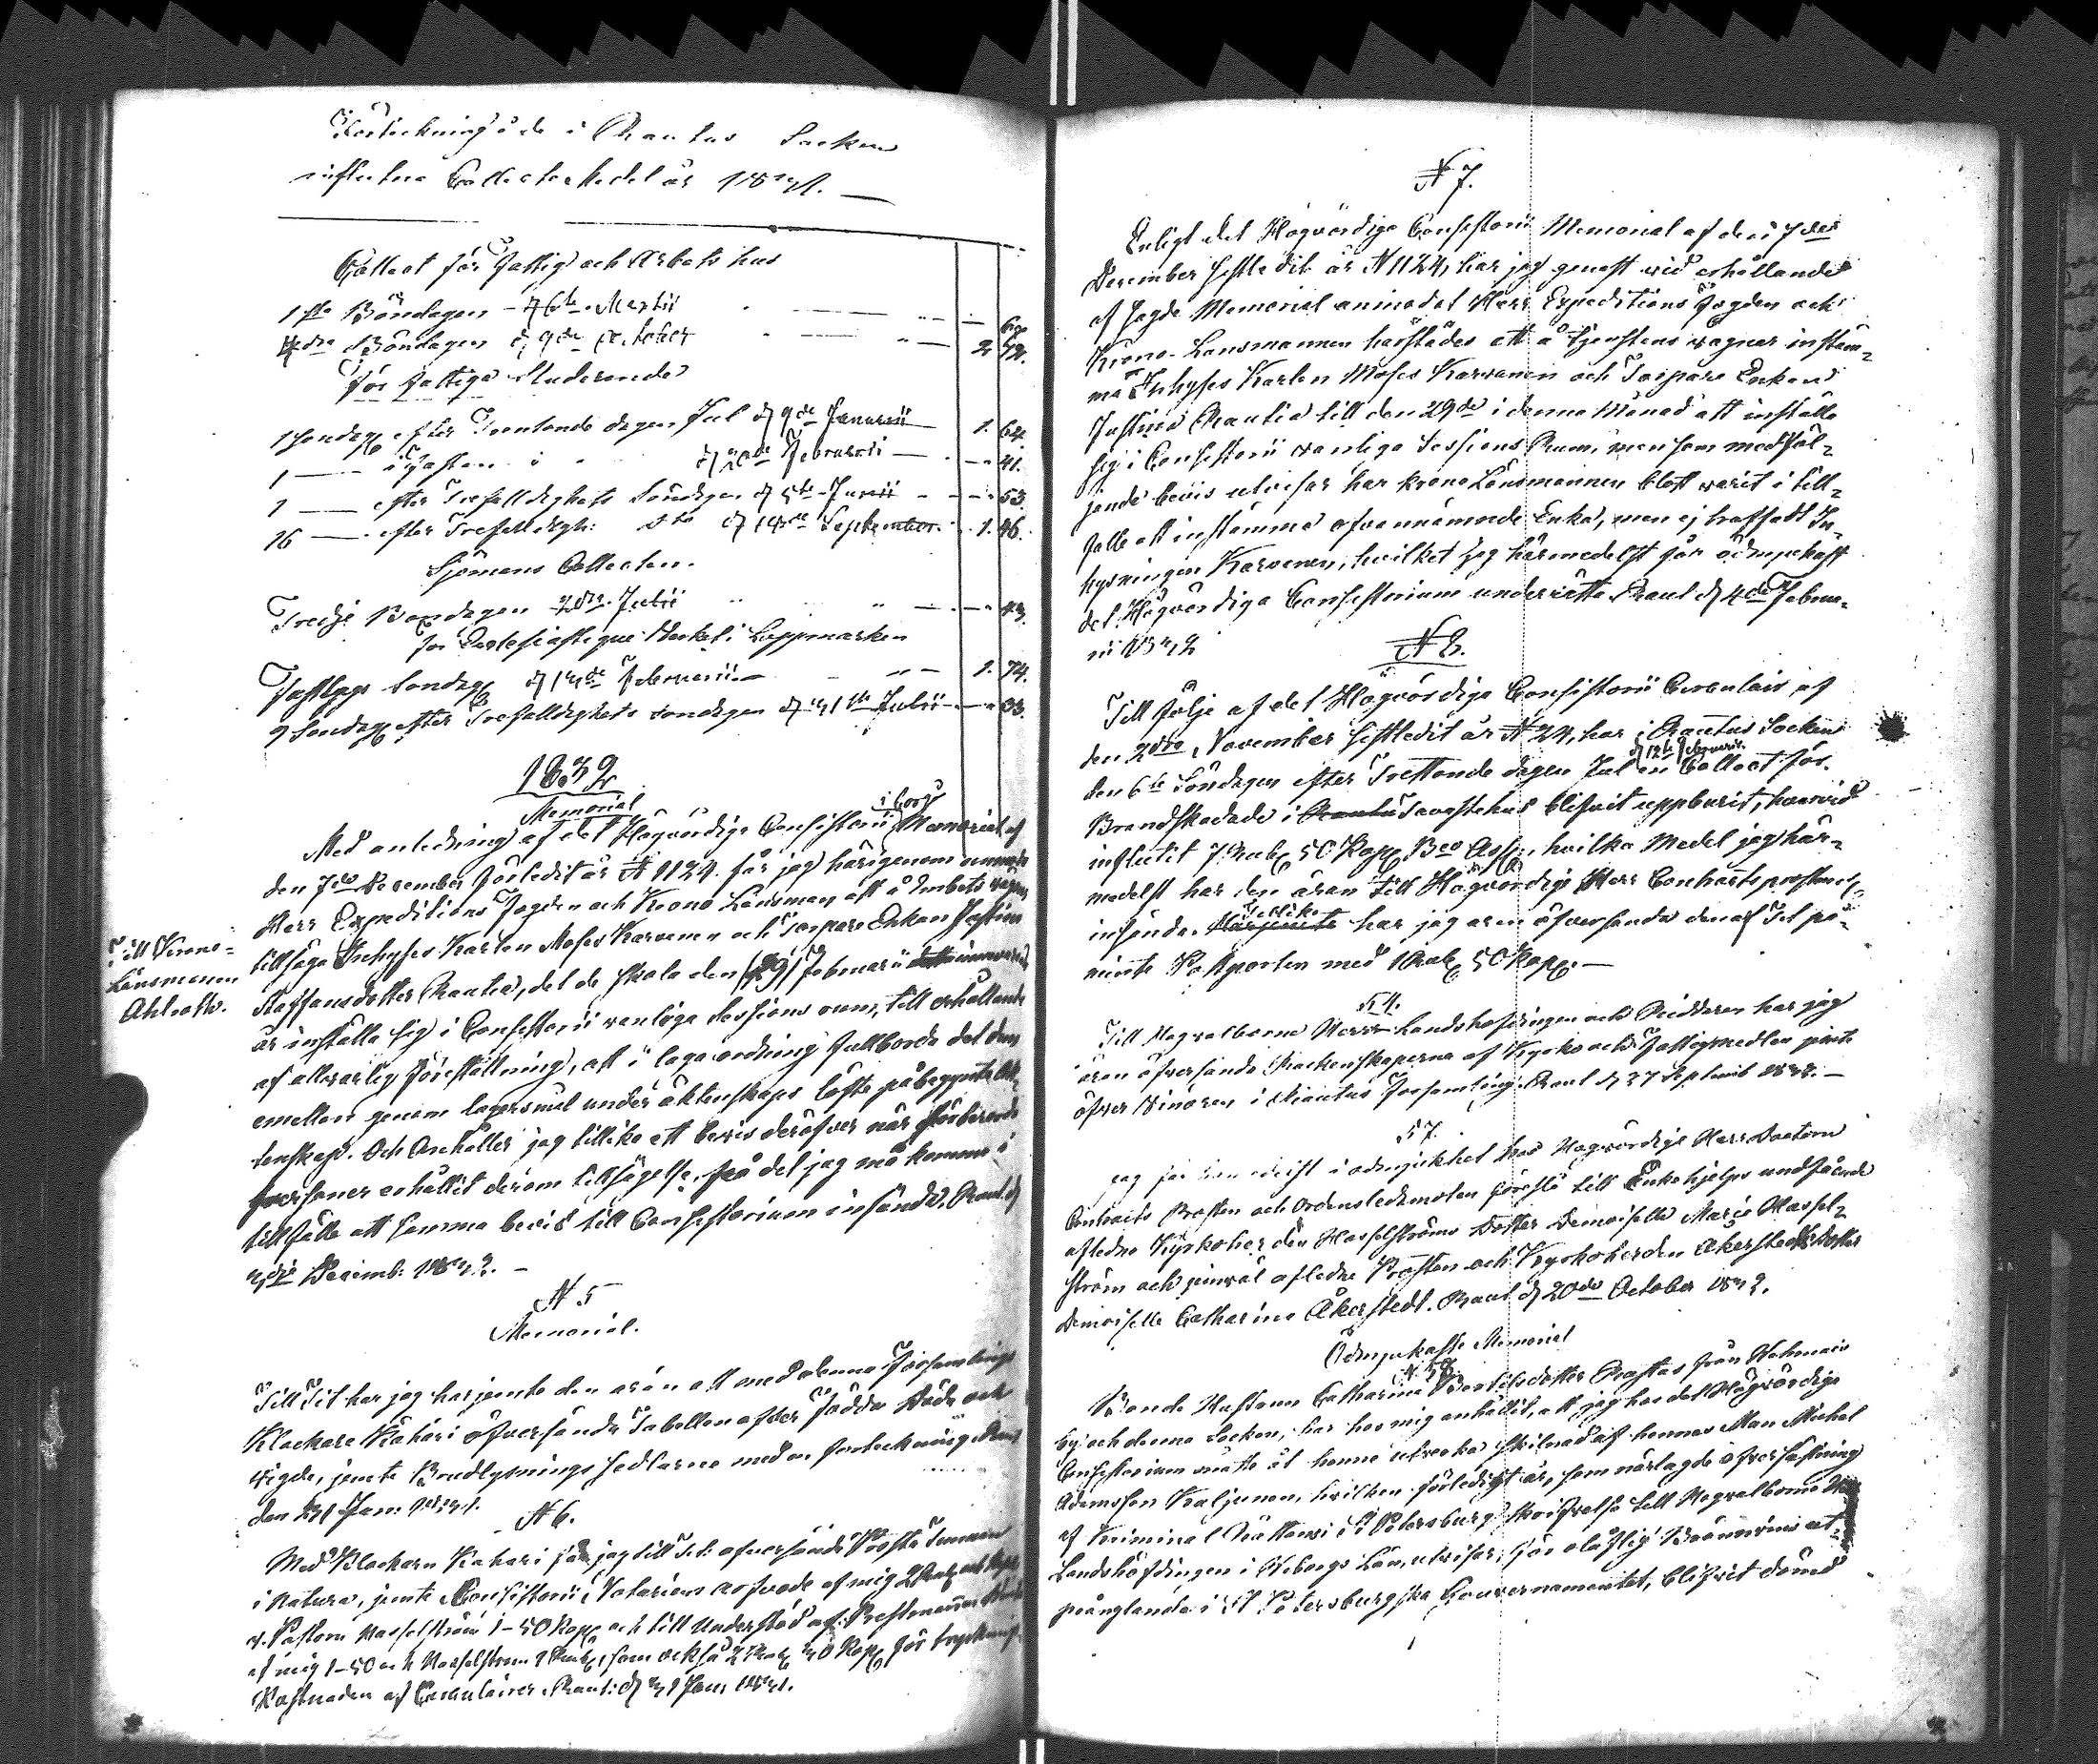 Förteckning å de i Rautus Socken
influtne Collectmedel år 1831.
Collect för Fattig och Arbets hus
1sta Böndagen d 6te Martii 69
4de Böndagen d 9de October 2 72.
För fattiga Studerande
1 Söndag efter Trettonde dagen Jul d 9de Januarii 1. 64.
1 — i Fastan d 20de Februarii — 41.
1 — efter Trefaldighets Söndagen d 5te Junii — 53
16 — efter Trefaldigh: d 18de September 1. 46.
Sjömans Collecten.
Tredje Böndagen Julii — 43.
för Ecclesiastique Verket i Lappmarken
Fastlags Söndag d 13de Februarii — 1. 74.
9 Söndag efter Trefaldighets söndagen d 31ste Julii — 33.
1832
Memorial
Med anledning af det Högvördige Consistorii i Borgå Memorial af
den 7de December förledit år N 1124. får jag härigenom anmoda
Herr Expeditions Fogden och Krono Länsman att å Embets vägnar
Till Krono-
Länsmannen
Ahlroth.
tillsäga Inhyses Karlen Moses Karvanen och Torpare Enkan Justina
Staffansdotter Rautia, det de skola den (29) Februarii
år inställa sig i Consistorii vanliga Sessions rum, till erhållande
af allvarlig föreställning, att i laga ordning fullborda det dem
emellan genom lägersmål under äktenskaps löfte påbegynte äk-
tenskap. Och anhåller jag tillika ett bevis deröfver när förberörde
personer erhållit derom tillsägelse, på det jag må komma i
tillfälle att samma bevis till Consistorium insända. Raut. d
3dje Decemb: 1832. —
N 5
Memorial.
Till Tit har jag härjemte den äran att med denna Församlings
Klockare Kähäri öfversända Tabellen öfver Födda Döda och
vigde, jemte Bondlysnings sedlarne med en förteckning. Raut
den 31 Jan: 1831.
N 6.
Med Klockarn Kähäri får jag till Tit: öfversända
i natura, jemte Consistorii Notariens arfvode af mig 2 Rub
v. Pastorn Hasselström 1-50 Kop och till Understöd af Prestmannen
af mig 1-50 och Hasselström 1 Rub, som också 2 Rub 30 Kop för tryckning
Kostnaden af Circulairer. Raut: d 31 Jan 1831.
N 7.
Enligt det Högvördige Consistorii Memorial af den 7de
December sistledit år N 1124, har jag genast vid erhållande
af sagde Memorial anmodat Herr Expeditions Fogden och
Krono-Länsmannen härstädes att å tjenstens vägnar instäm-
ma Inhyses Karlen Moses Karvanen och Torpare Enkan
Justina Rautia till den 29de i denna Månad att inställa
sig i Consistorii vanliga Sessions Rum, men som medföl-
jande bevis utvisar har Krono Länsmannen blott varit i till-
fälle att instämma ofvannämnde Enka, men ej träffadt In-
hysningen Karvanen, hvilket jag härmedelst får ödmjukast
det Högvördiga Consistorium underrätta. Raut d 4de Februa-
rii 1832
N 8.
Till följe af det Högvördige Consistorii Circulair af
den 2dra November sistledit år N 24, har i Rautus Socken
den 6te Söndagen efter Trettonde dagen Jul d 12te Februarii en Collect för
Brandskadade i Tavastehus blifvit uppburit, hvarvid
influtit 7 Rub 50 Kop Bco Ass, hvilka Medel jag här-
medelst har den äran till Högvördige Herr Contracts prosten
insända. Tillika har jag äran öfversända den af Tit på-
minte Postporton med 1 Rub 50 Kop. —
Till Högvälborne Herr Landshöfdingen och Riddaren har jag
äran öfversända Räckenskaperna af Kyrko och Fattigmedlen jemte
öfver i Rautus Församling. Raut d 27 Septemb 1832. —
Jag får i ödmjukhet hos Högvördige Herr Doctorn
Contracts Prosten och Ordensledamoten föreslå till Enkehjelps undfående
afledne Kyrkoherden Hasselströms dotter Demoiselle Maria Hassel-
ström och jemväl afledne Prosten och Kyrkoherden Åkerstedts dotter
Demoiselle Catharina Åkerstedt. Raut d 20de October 1832.
Ödmjukaste Memorial
Bonde Hustrun Catharina Bertilsdotter från
by och denna Socken, har hos mig anhållit, att jag hos det Högvördige
Consistorium måtte åt henne utverka skilnad af hennes Man Michel
Adamsson Kaljunen, hvilken förledigt år, som närlagde öfversättning
af Criminal Rättens i S:t Petersburg skrifvelse till Högvälborne
Landshöfdingen i Wiborgs Län, utvisar, för olaflig Brännvins ut-
prånglande i S:t Petersburgska Gouvernamentet, blifvit dömd